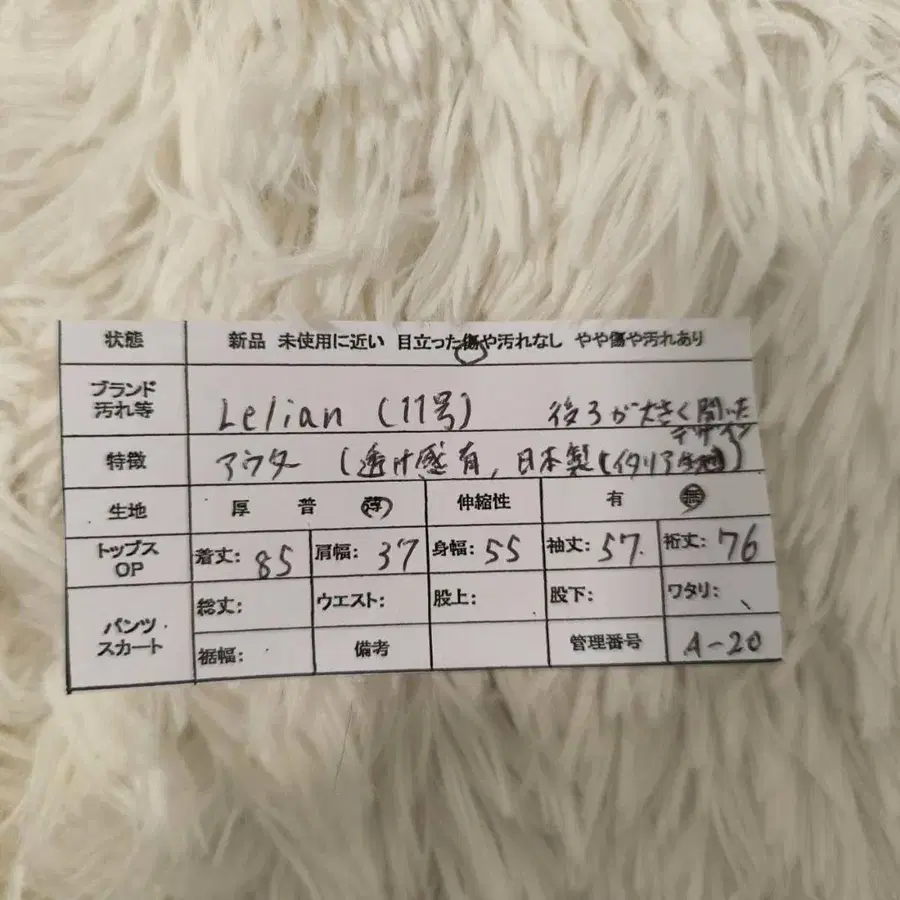 状態 新品 未使用に近い 目立った傷や汚れなし やや傷や汚れあり
ブランド 汚れ等 Lelian (11号) 後ろが大きく開いたデザイン
特徴 アウター (透け感有, 日本製(イタリア
生地 厚 普 薄 伸縮性 有 無
トップス OP 着丈: 85 肩幅: 37 身幅: 55 袖丈: 57. 裄丈: 76
パンツ スカート 総丈: ウエスト: 股上: 股下: ワタリ:
裾幅: 備考 管理番号 A-20